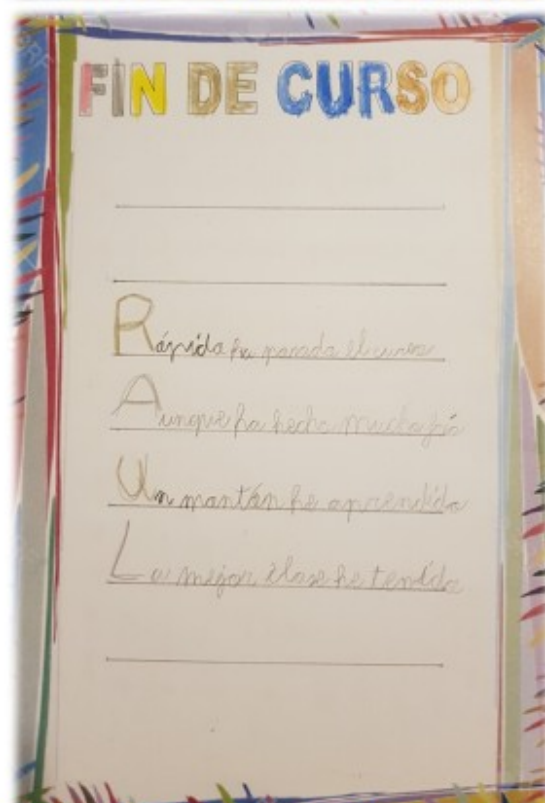 FIN DE CURSO
Rápido ha pasado el curso
Aunque ha hecho mucho frío
Un montón he aprendido
La mejor clase he tenido